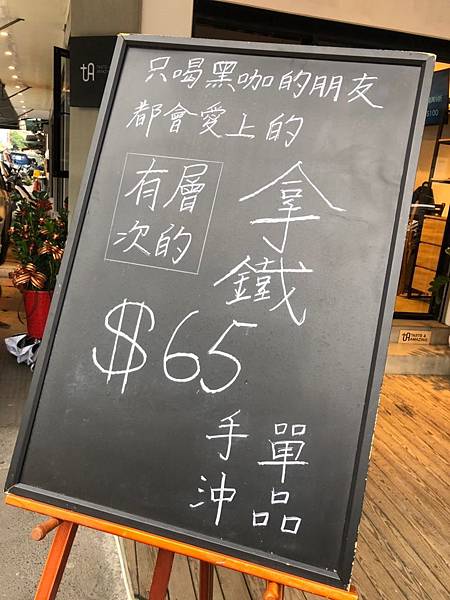 tA
只喝黑咖的朋友
都會愛上的
有層
次的
拿鐵
$65
單品
手沖
tA TASTE & AMAZING